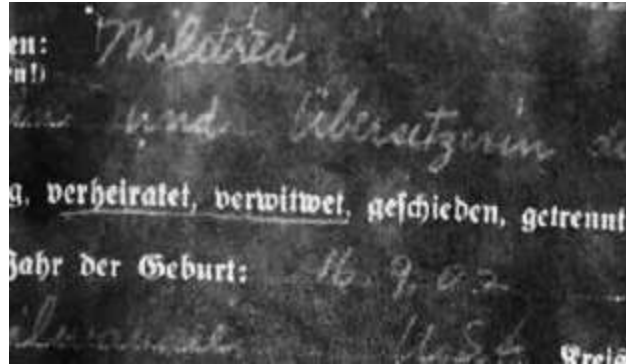 en: Mildred
n!)
und Übersetzerin de
g, verheiratet, verwitwet, geschieden, getrennt
Jahr der Geburt: 16. 9. 02
ilwaukee U.S.A. Kreis